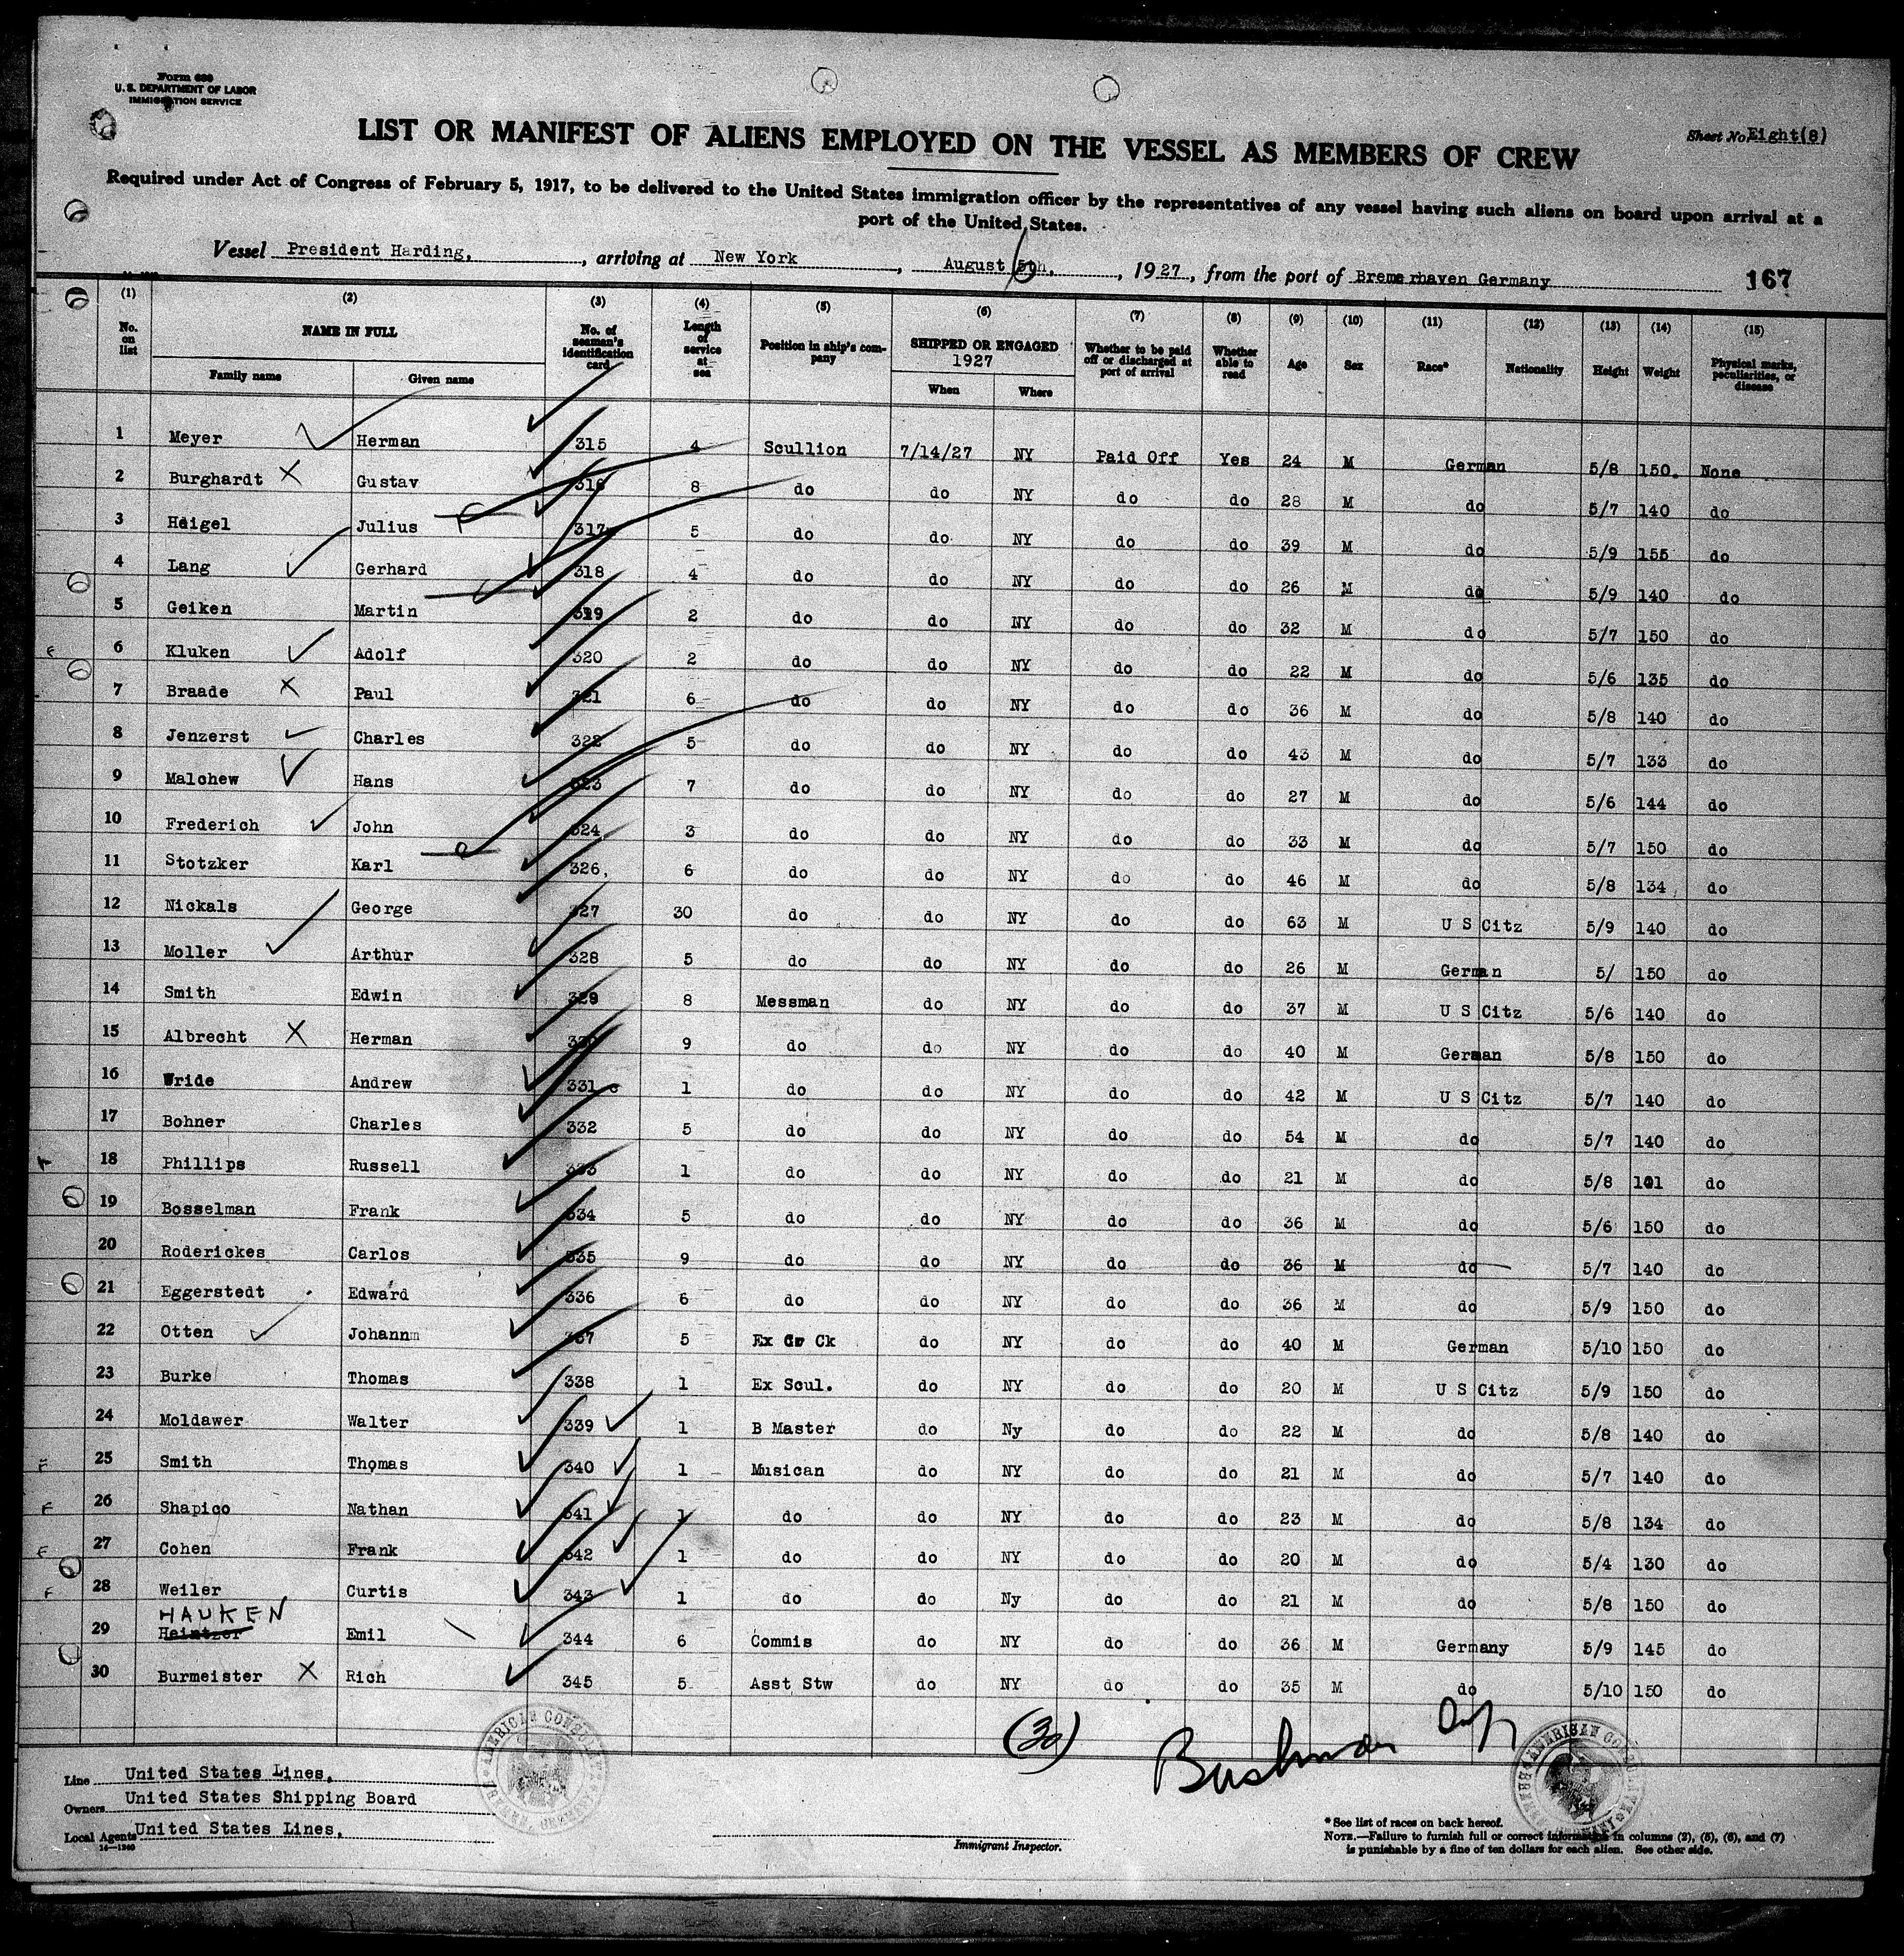 Form 680
U. S. DEPARTMENT OF LABOR
IMMIGRATION SERVICE
Sheet No. Eight(8)
LIST OR MANIFEST OF ALIENS EMPLOYED ON THE VESSEL AS MEMBERS OF CREW
Required under Act of Congress of February 5, 1917, to be delivered to the United States immigration officer by the representatives of any vessel having such aliens on board upon arrival at a
port of the United States.
Vessel President Harding, , arriving at New York , August 6 5th, , 1927, from the port of Bremerhaven Germany 167
(1) (2) (3) (4) (5) (6) (7) (8) (9) (10) (11) (12) (13) (14) (15)
No. on list NAME IN FULL No. of seaman's identification card Length of service at sea Position in ship's company SHIPPED OR ENGAGED 1927 Whether to be paid off or discharged at port of arrival Whether able to read Age Sex Race* Nationality Height Weight Physical marks, peculiarities, or disease
Family name Given name When Where
1 Meyer Herman 315 4 Scullion 7/14/27 NY Paid Off Yes 24 M German 5/8 150. None
2 Burghardt Gustav 316 8 do do NY do do 28 M do 5/7 140 do
3 Heigel Julius 317 5 do do NY do do 39 M do 5/9 155 do
4 Lang Gerhard 318 4 do do NY do do 26 M do 5/9 140 do
5 Geiken Martin 319 2 do do NY do do 32 M do 5/7 150 do
6 Kluken Adolf 320 2 do do NY do do 22 M do 5/6 135 do
7 Braade Paul 321 6 do do NY do do 36 M do 5/8 140 do
8 Jenzerst Charles 322 5 do do NY do do 43 M do 5/7 133 do
9 Malchew Hans 323 7 do do NY do do 27 M do 5/6 144 do
10 Frederich John 324 3 do do NY do do 33 M do 5/7 150 do
11 Stotzker Karl 326, 6 do do NY do do 46 M do 5/8 134 do
12 Nickals George 327 30 do do NY do do 63 M U S Citz 5/9 140 do
13 Moller Arthur 328 5 do do NY do do 26 M German 5/ 150 do
14 Smith Edwin 329 8 Messman do NY do do 37 M U S Citz 5/6 140 do
15 Albrecht Herman 330 9 do do NY do do 40 M German 5/8 150 do
16 Wride Andrew 331 1 do do NY do do 42 M U S Citz 5/7 140 do
17 Bohner Charles 332 5 do do NY do do 54 M do 5/7 140 do
18 Phillips Russell 333 1 do do NY do do 21 M do 5/8 do
19 Bosselman Frank 334 5 do do NY do do 36 M do 5/6 150 do
20 Roderickes Carlos 335 9 do do NY do do 36 M do 5/7 140 do
21 Eggerstedt Edward 336 6 do do NY do do 36 M do 5/9 150 do
22 Otten Johann 337 5 Ex Ck do NY do do 40 M German 5/10 150 do
23 Burke Thomas 338 1 Ex Scul. do NY do do 20 M U S Citz 5/9 150 do
24 Moldawer Walter 339 1 B Master do Ny do do 22 M do 5/8 140 do
25 Smith Thomas 340 1 Musican do NY do do 21 M do 5/7 140 do
26 Shapico Nathan 341 1 do do NY do do 23 M do 5/8 134 do
27 Cohen Frank 342 1 do do NY do do 20 M do 5/4 130 do
28 Weiler Curtis 343 1 do do Ny do do 21 M do 5/8 150 do
HAUKEN
29 Heintzer Emil 344 6 Commis do NY do do 36 M Germany 5/9 145 do
30 Burmeister Rich 345 5 Asst Stw do NY do do 35 M do 5/10 150 do
(30)
Line United States Lines,
Owners United States Shipping Board
Local Agents United States Lines,
14—1240
Immigrant Inspector.
* See list of races on back hereof.
NOTE.—Failure to furnish full or correct information in columns (2), (5), (6), and (7)
is punishable by a fine of ten dollars for each alien. See other side.